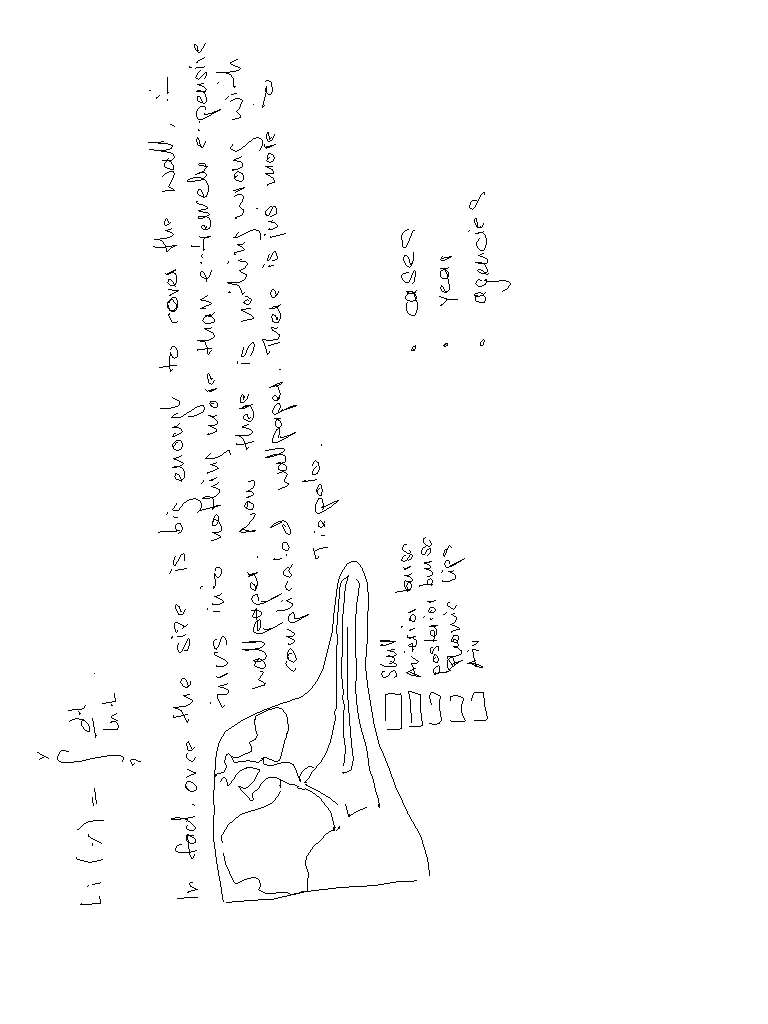 Li(x) = ∫₂ˣ dt/ln t.
In fact, once the size is big enough to cover the wall, it
turns into nothing more than extremely expensive
wallpaper. Now there is nothing wrong with
complicated wallpaper. There is just more to
Tiepolo.
Skull
Anterior bursa
posterior bursa
Phonic lips
Air
• cases
• year
• agencies